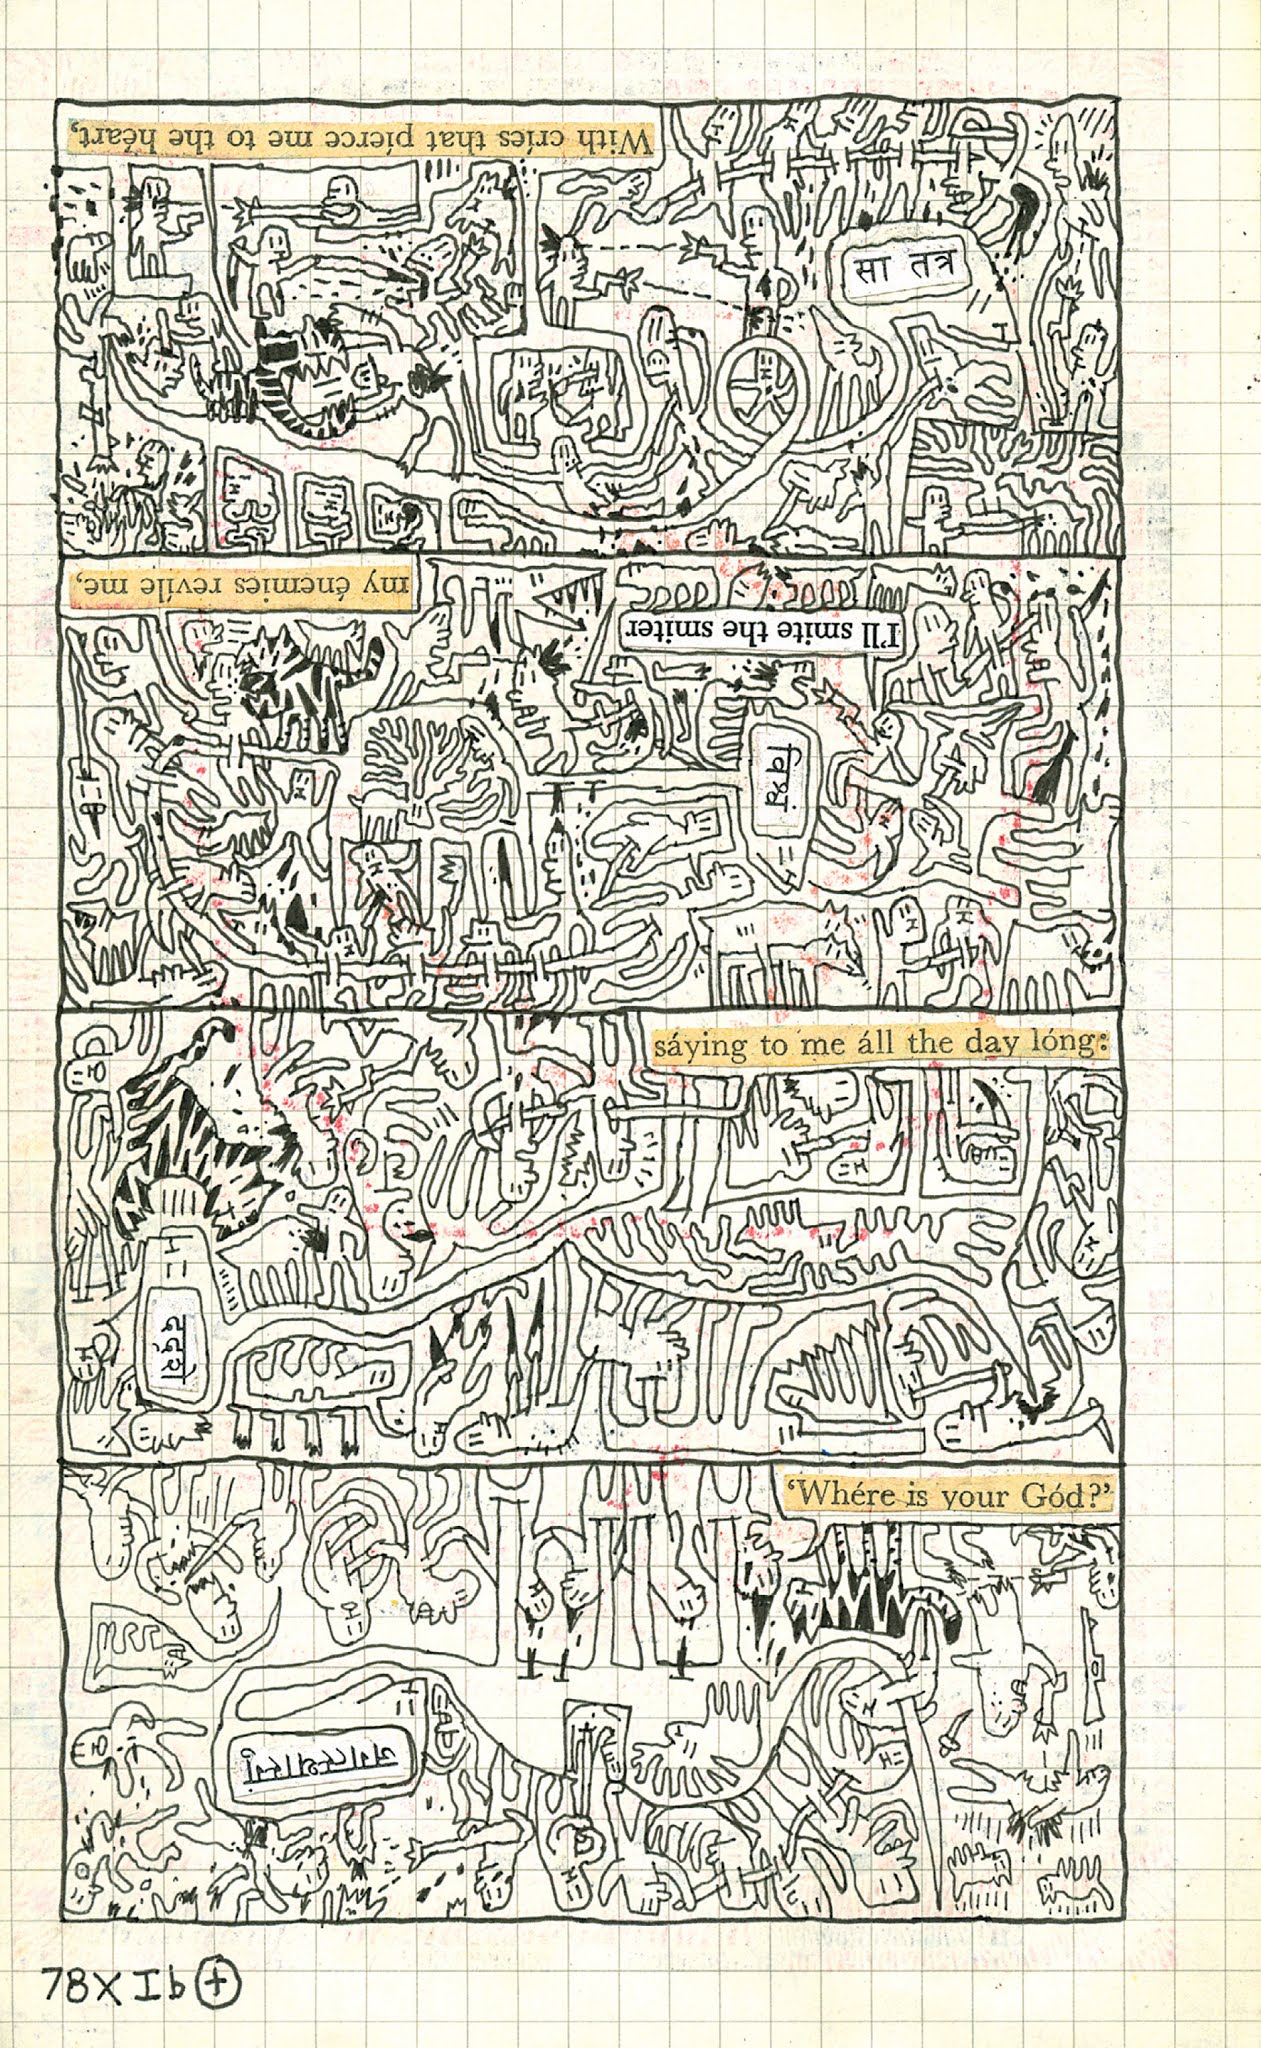 With críes that píerce me to the héart,
सा तत्र
my énemies revíle me,
I'll smite the smiter
विश्वं
sáying to me áll the day lóng:
ददृशे
'Whére is your Gód?'
जगत्स्थास्नु
78XIb+